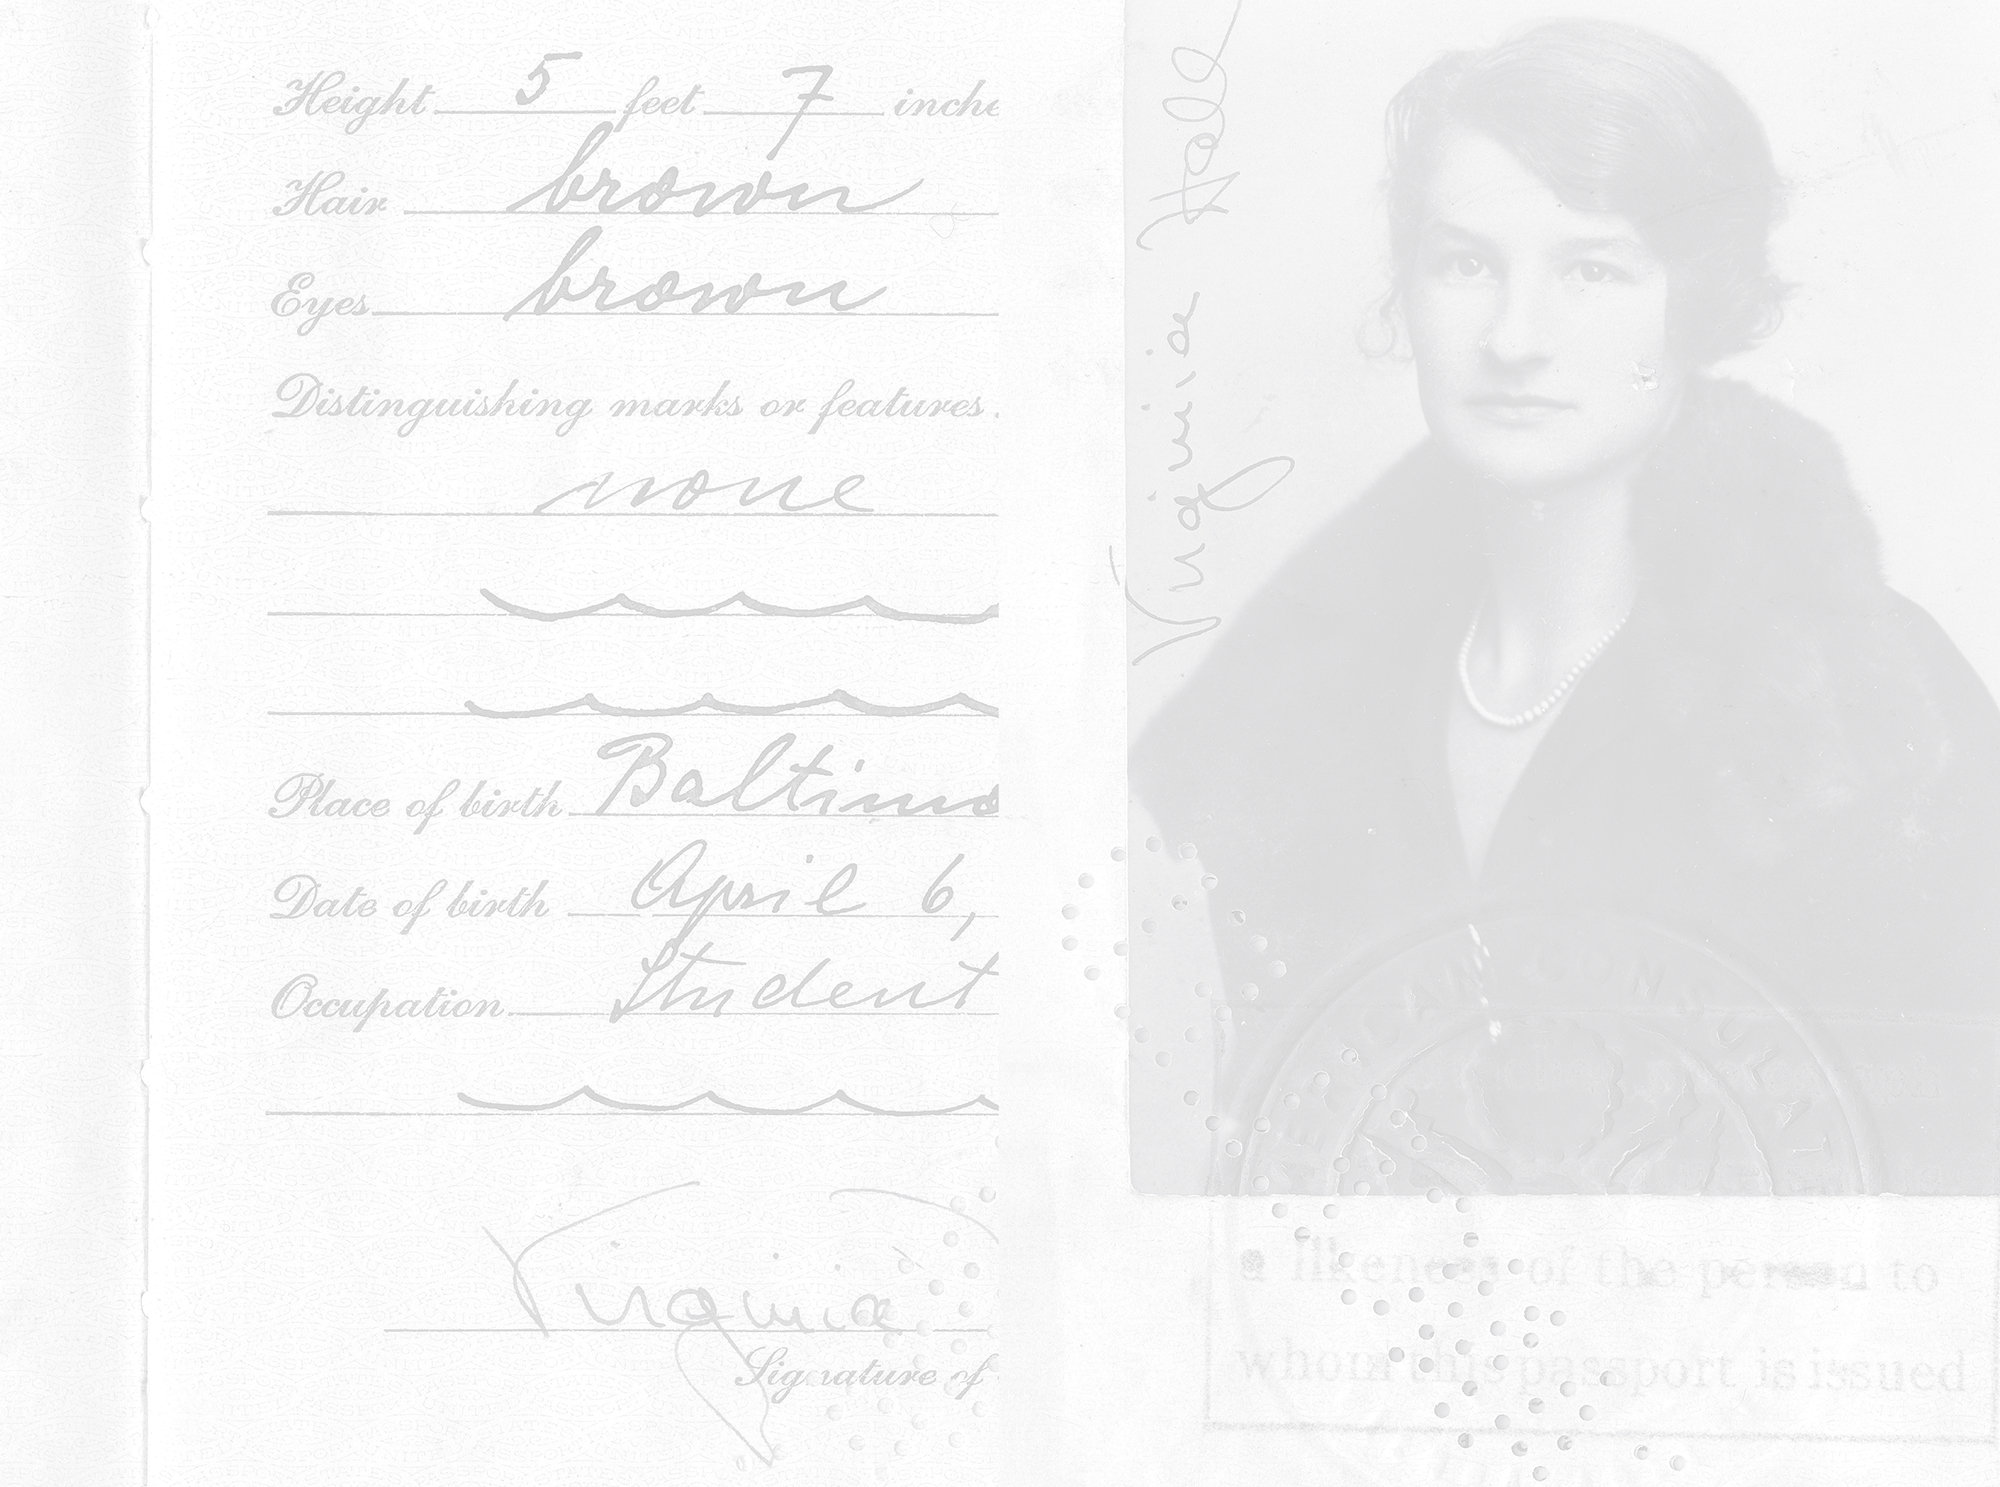 Height 5 feet 7 inche
Hair brown
Eyes brown
Distinguishing marks or features.
none
Place of birth Baltimo
Date of birth April 6,
Occupation Student
Virginia
Signature of
Virginia Hall
AMERICAN CONSULAT
a likeness of the person to
whom this passport is issued